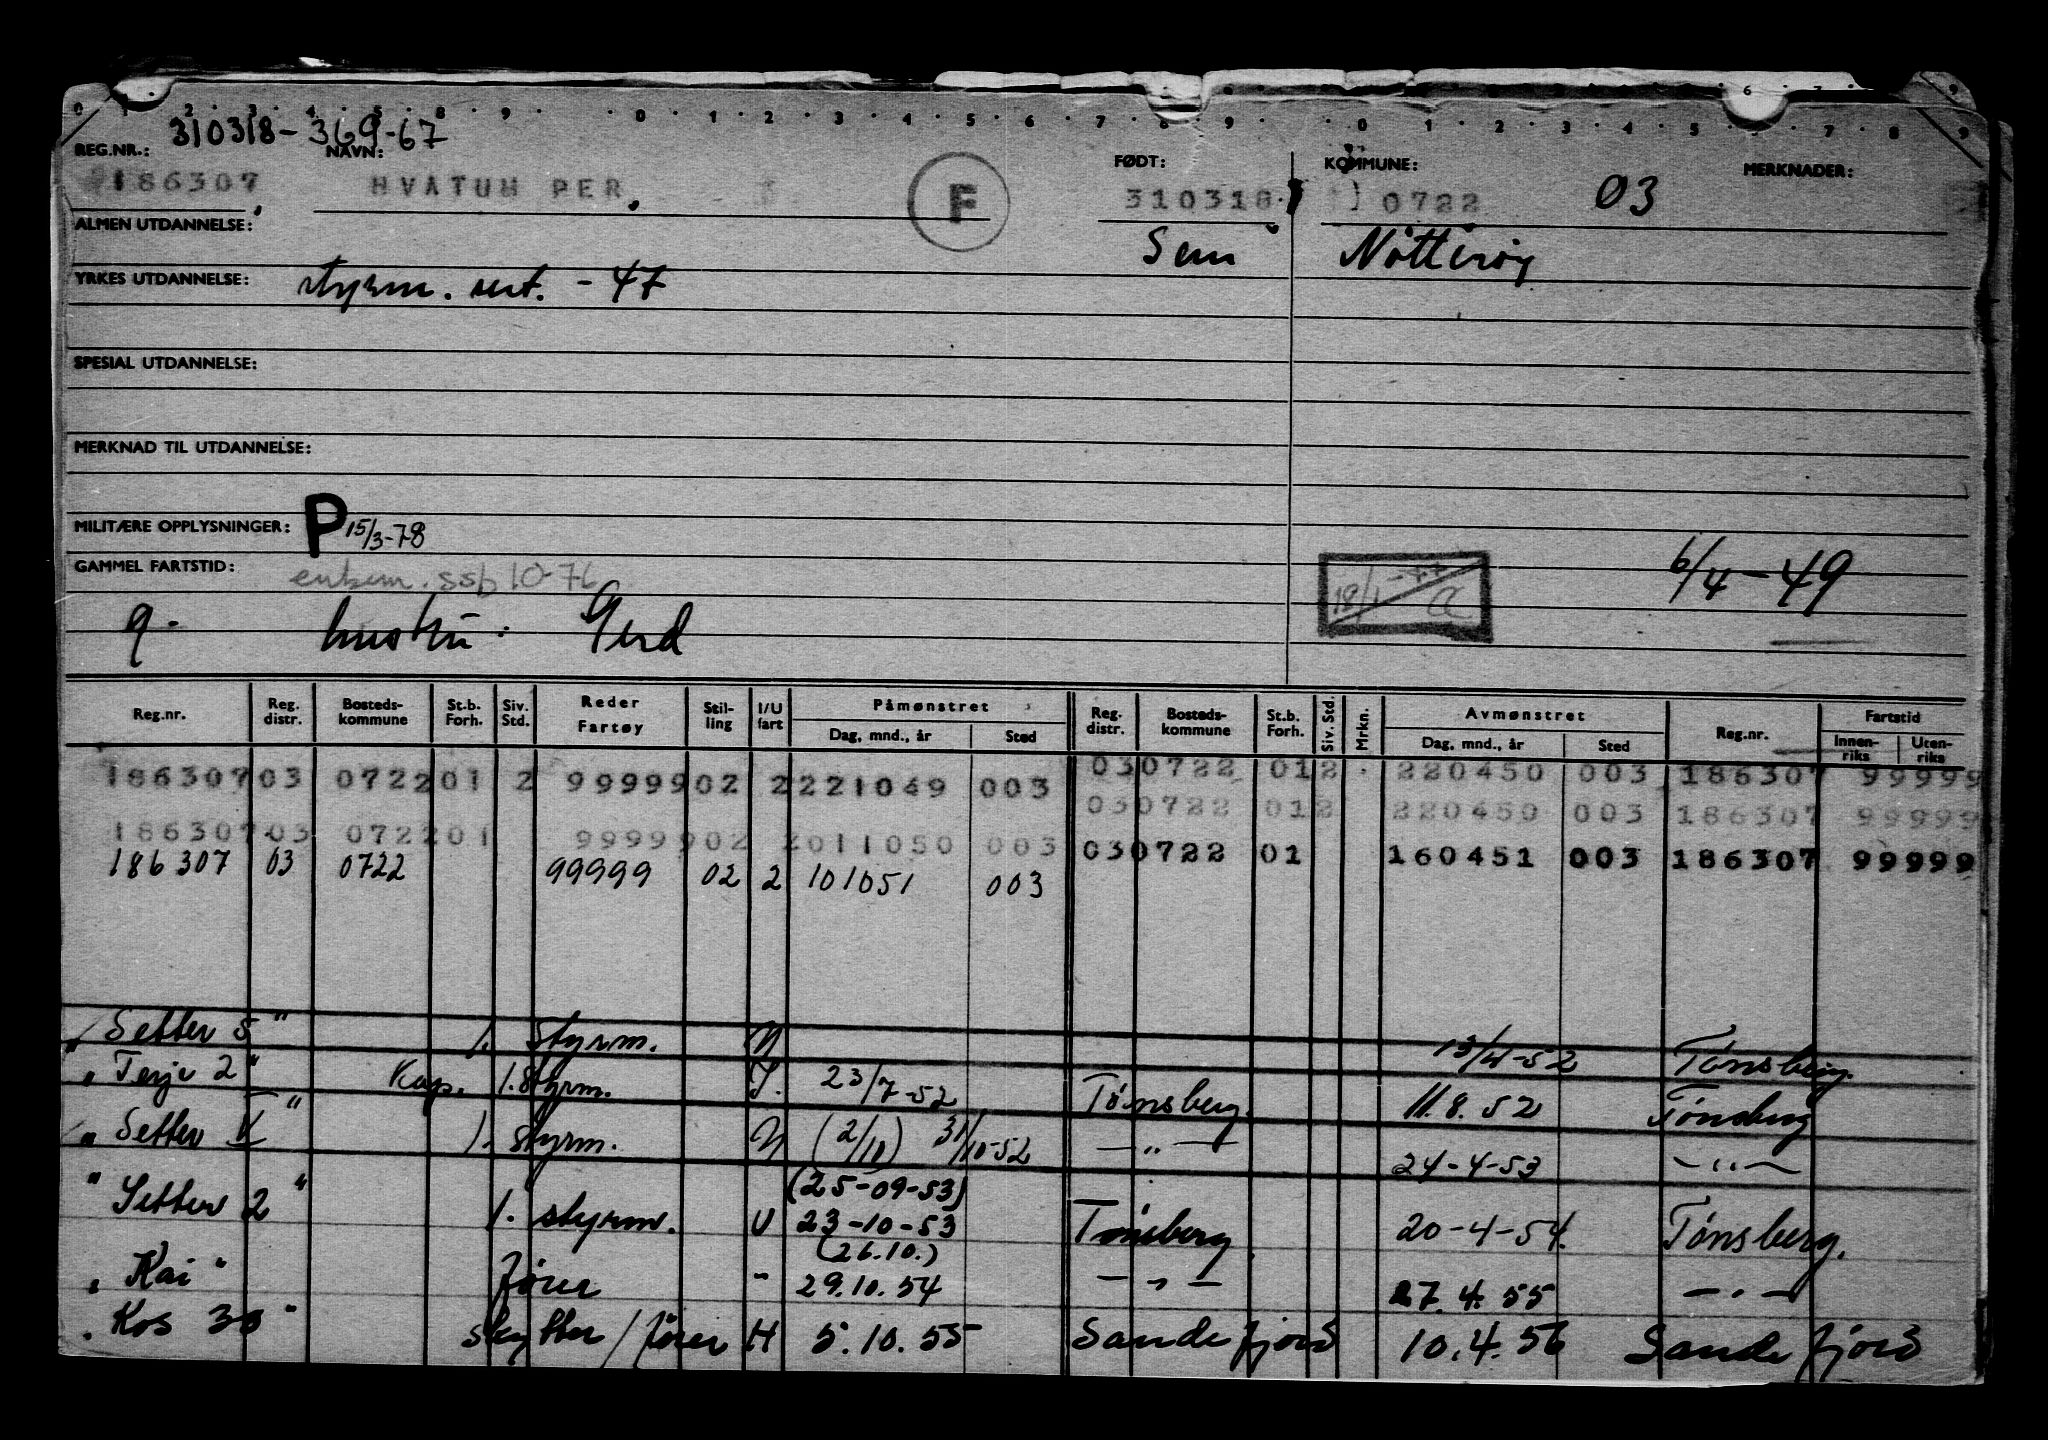 310318-369-67
REG.NR.: NAVN: FØDT: KOMMUNE: MERKNADER:
186307 HVATUM PER. F 310318 0722 03
ALMEN UTDANNELSE: Sem Nøtterøy
YRKES UTDANNELSE: styrm. sert. - 47
SPESIAL UTDANNELSE:
MERKNAD TIL UTDANNELSE:
MILITÆRE OPPLYSNINGER: P 15/3-78
GAMMEL FARTSTID: ssb 10-76 18/1-77 a 6/4-49
9. hustru: Gerd
Reg.nr. Reg. distr. Bosteds-kommune St.b. Forh. Siv. Std. Reder Fartøy Stil-ling I/U fart Påmønstret Dag, mnd., år Sted Reg. distr. Bosteds-kommune St.b. Forh. Siv. Std. Mrkn. Avmønstret Dag, mnd., år Sted Reg.nr. Fartstid Innen-riks Uten-riks
186307 03 0722 01 2 99999 02 2 221049 003 03 0722 01 2 220450 003 186307 99999
03 0722 01 2 220450 003 186307 99999
186307 03 0722 01 99999 02 2 011050 003 03 0722 01 160451 003 186307 99999
186307 03 0722 99999 02 2 101051 003
"Setter 5" 1. Styrm. U 13/4-52 Tønsberg.
"Terje 2" Kap. 1. Styrm. I. 23/7-52 Tønsberg. 11.8.52 Tønsberg
"Setter V" 1. styrm. U (2/10) 31/10-52 — " — 24-4-53 — " —
(25-09-53)
"Setter 2" 1. styrm. U 23-10-53 Tønsberg. 20-4-54. Tønsberg.
(26.10.)
"Kai" fører " 29.10.54 — " — 27.4.55 — " —
"Kos 30" skytter/fører H 5.10.55 Sandefjord 10.4.56 Sandefjord